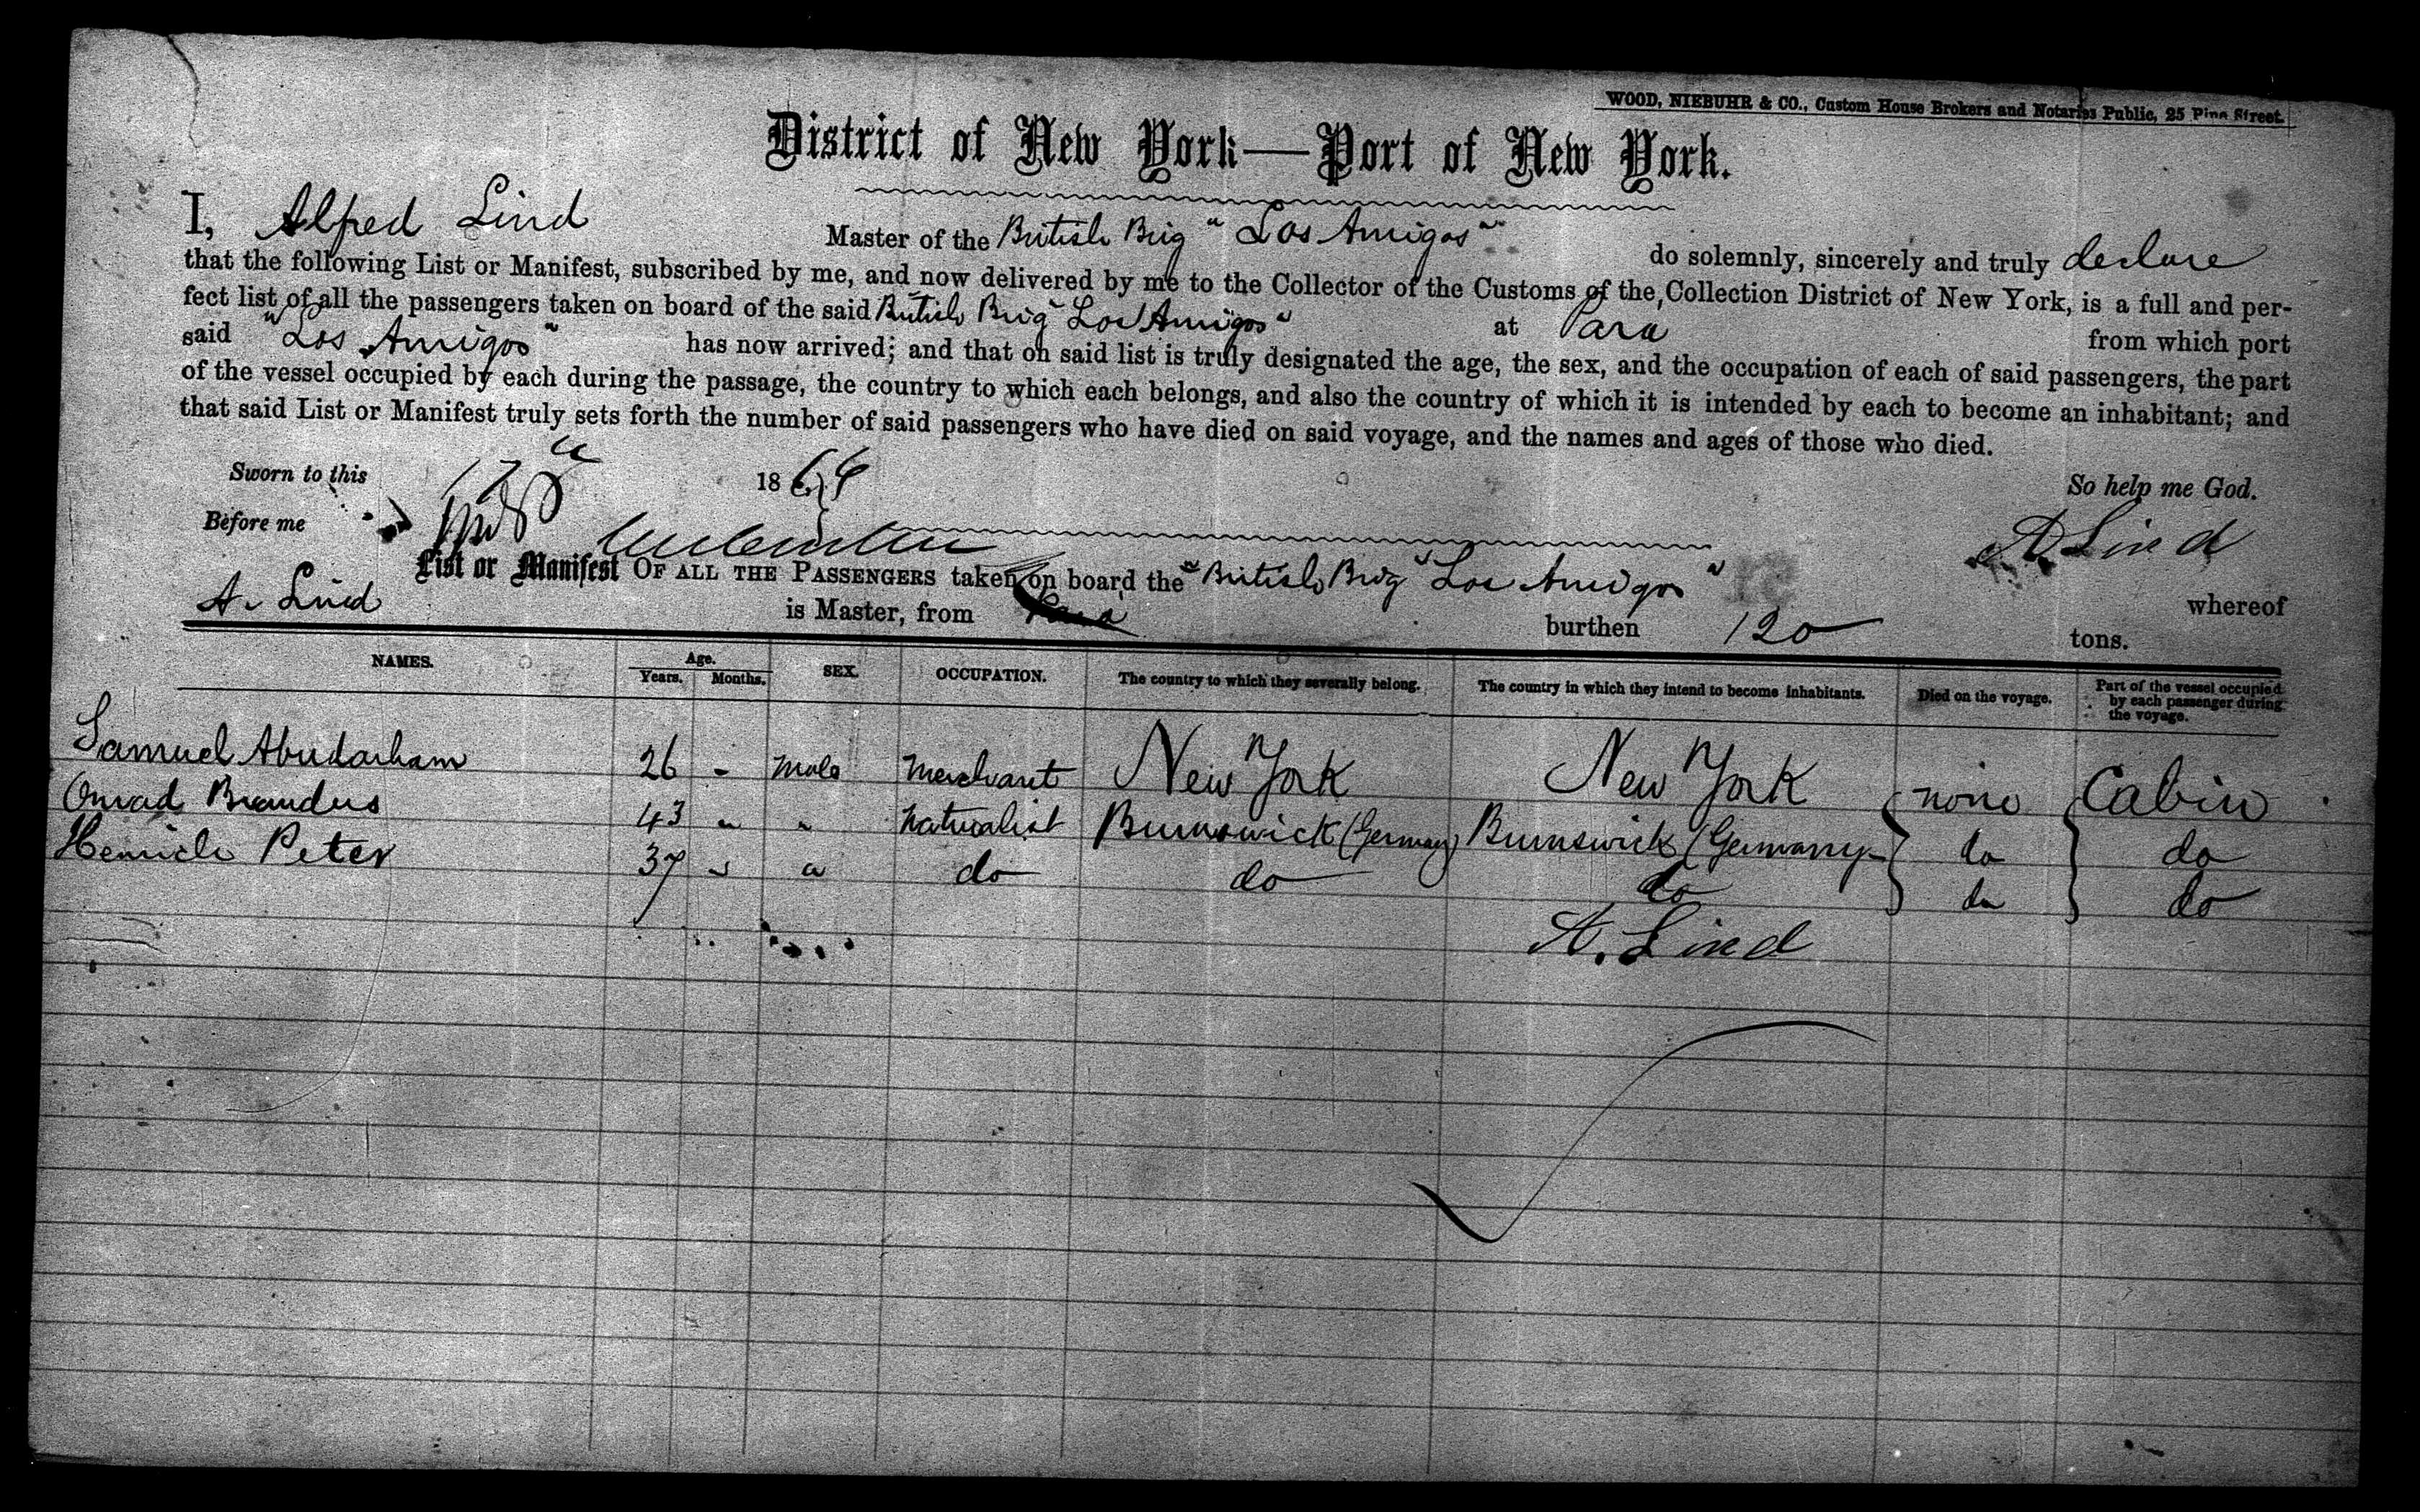 WOOD, NIEBUHR & CO., Custom House Brokers and Notaries Public, 25 Pine Street.
District of New York—Port of New York.
I, Alfred Lind Master of the British Brig "Los Amigos" do solemnly, sincerely and truly declare
that the following List or Manifest, subscribed by me, and now delivered by me to the Collector of the Customs of the Collection District of New York, is a full and per-
fect list of all the passengers taken on board of the said British Brig "Los Amigos" at Para from which port
said "Los Amigos" has now arrived; and that on said list is truly designated the age, the sex, and the occupation of each of said passengers, the part
of the vessel occupied by each during the passage, the country to which each belongs, and also the country of which it is intended by each to become an inhabitant; and
that said List or Manifest truly sets forth the number of said passengers who have died on said voyage, and the names and ages of those who died.
Sworn to this 17th 1866 So help me God.
Before me A Lind
List or Manifest OF ALL THE PASSENGERS taken on board the "British Brig "Los Amigos" whereof
A. Lind is Master, from Para burthen 120 tons.
NAMES. Age. Years. Months. SEX. OCCUPATION. The country to which they severally belong. The country in which they intend to become inhabitants. Died on the voyage. Part of the vessel occupied by each passenger during the voyage.
Samuel Abudarham 26 - Male Merchant New York New York none Cabin
Conrad Brandus 43 " " Naturalist Burnswick (Germany) Burnswick (Germany do do
Henrich Peter 37 " " do do do do do
A. Lind